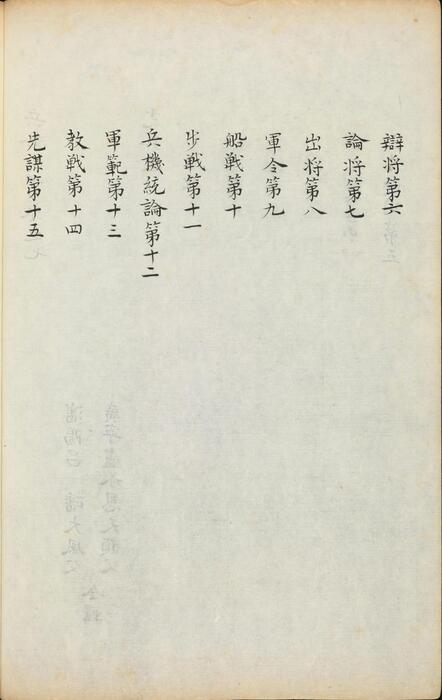 辯将第六
論将第七
出将第八
軍令第九
船戦第十
步戦第十一
兵機統論第十二
軍範第十三
教戦第十四
先謀第十五